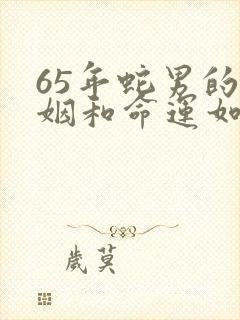 65年蛇男的
姻和命運如
歲莫